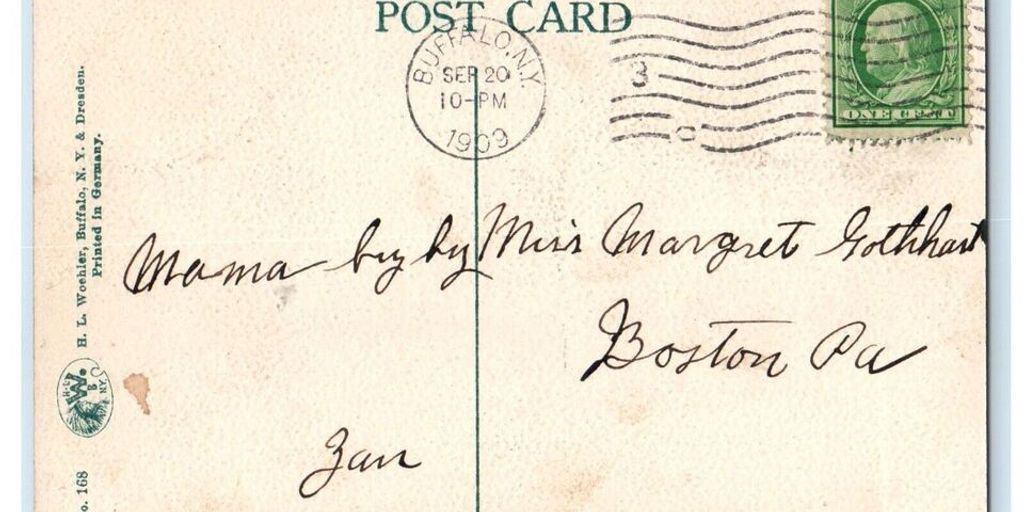 POST CARD
BUFFALO, N.Y.
SEP 20
10-PM
1909
3
C
ONE CENT
H. L. Woehler, Buffalo, N. Y. & Dresden.
Printed in Germany.
H.L.
W.
B
N.Y.
o. 168
Mama by by
Miss Margret Gothhart
Boston Pa
Zan